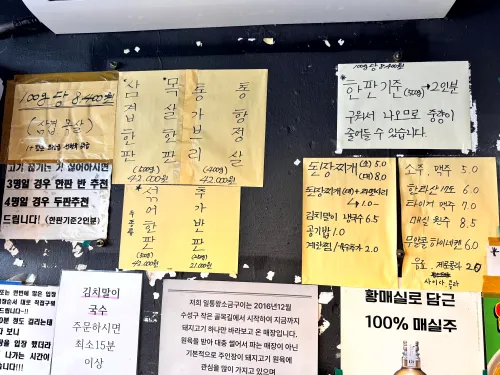 100g 당 8,400원
(삼겹 목살)
고기 끊기는 거 싫어하시면
3명일 경우 한판 반 추천
4명일 경우 두판추천
드립니다! (한판기준2인분)
*삼겹한판
(500g)
42,000원
*목살한판
통가브리
통항정살
(500g)
42,000원
*섞어한판
(500g)
42,000원
추가반판
(250g)
21,000원
100g당 8,400원
*한판기준(500g)→2인분
구워서 나오므로 중량이
줄어들 수 있습니다.
된장찌개 (소) 5.0
(대) 8.0
된장찌개(대)+라면사리
+1.0
김치말이 냉국수 6.5
공기밥 1.0
계란찜/옥수룩자 2.0
소주, 맥주 5.0
한라산 소주 6.0
타이거 맥주 7.0
매실 원주 8.5
무알콜 하이네켄 6.0
음료. 제로콜라 2.0
사이다 콜라
김치말이
국수
주문하시면
최소15분
이상
저희 일통쌈소금구이는 2016년12월
수성구 작은 골목길에서 시작하여 지금까지
돼지고기 하나만 바라보고 온 매장입니다.
원육을 받아 대충 썰어서 파는 매장이 아닌
기본적으로 주인장이 돼지고기 원육에
관심을 많이 가지고 있으며
황매실로 담근
100% 매실주